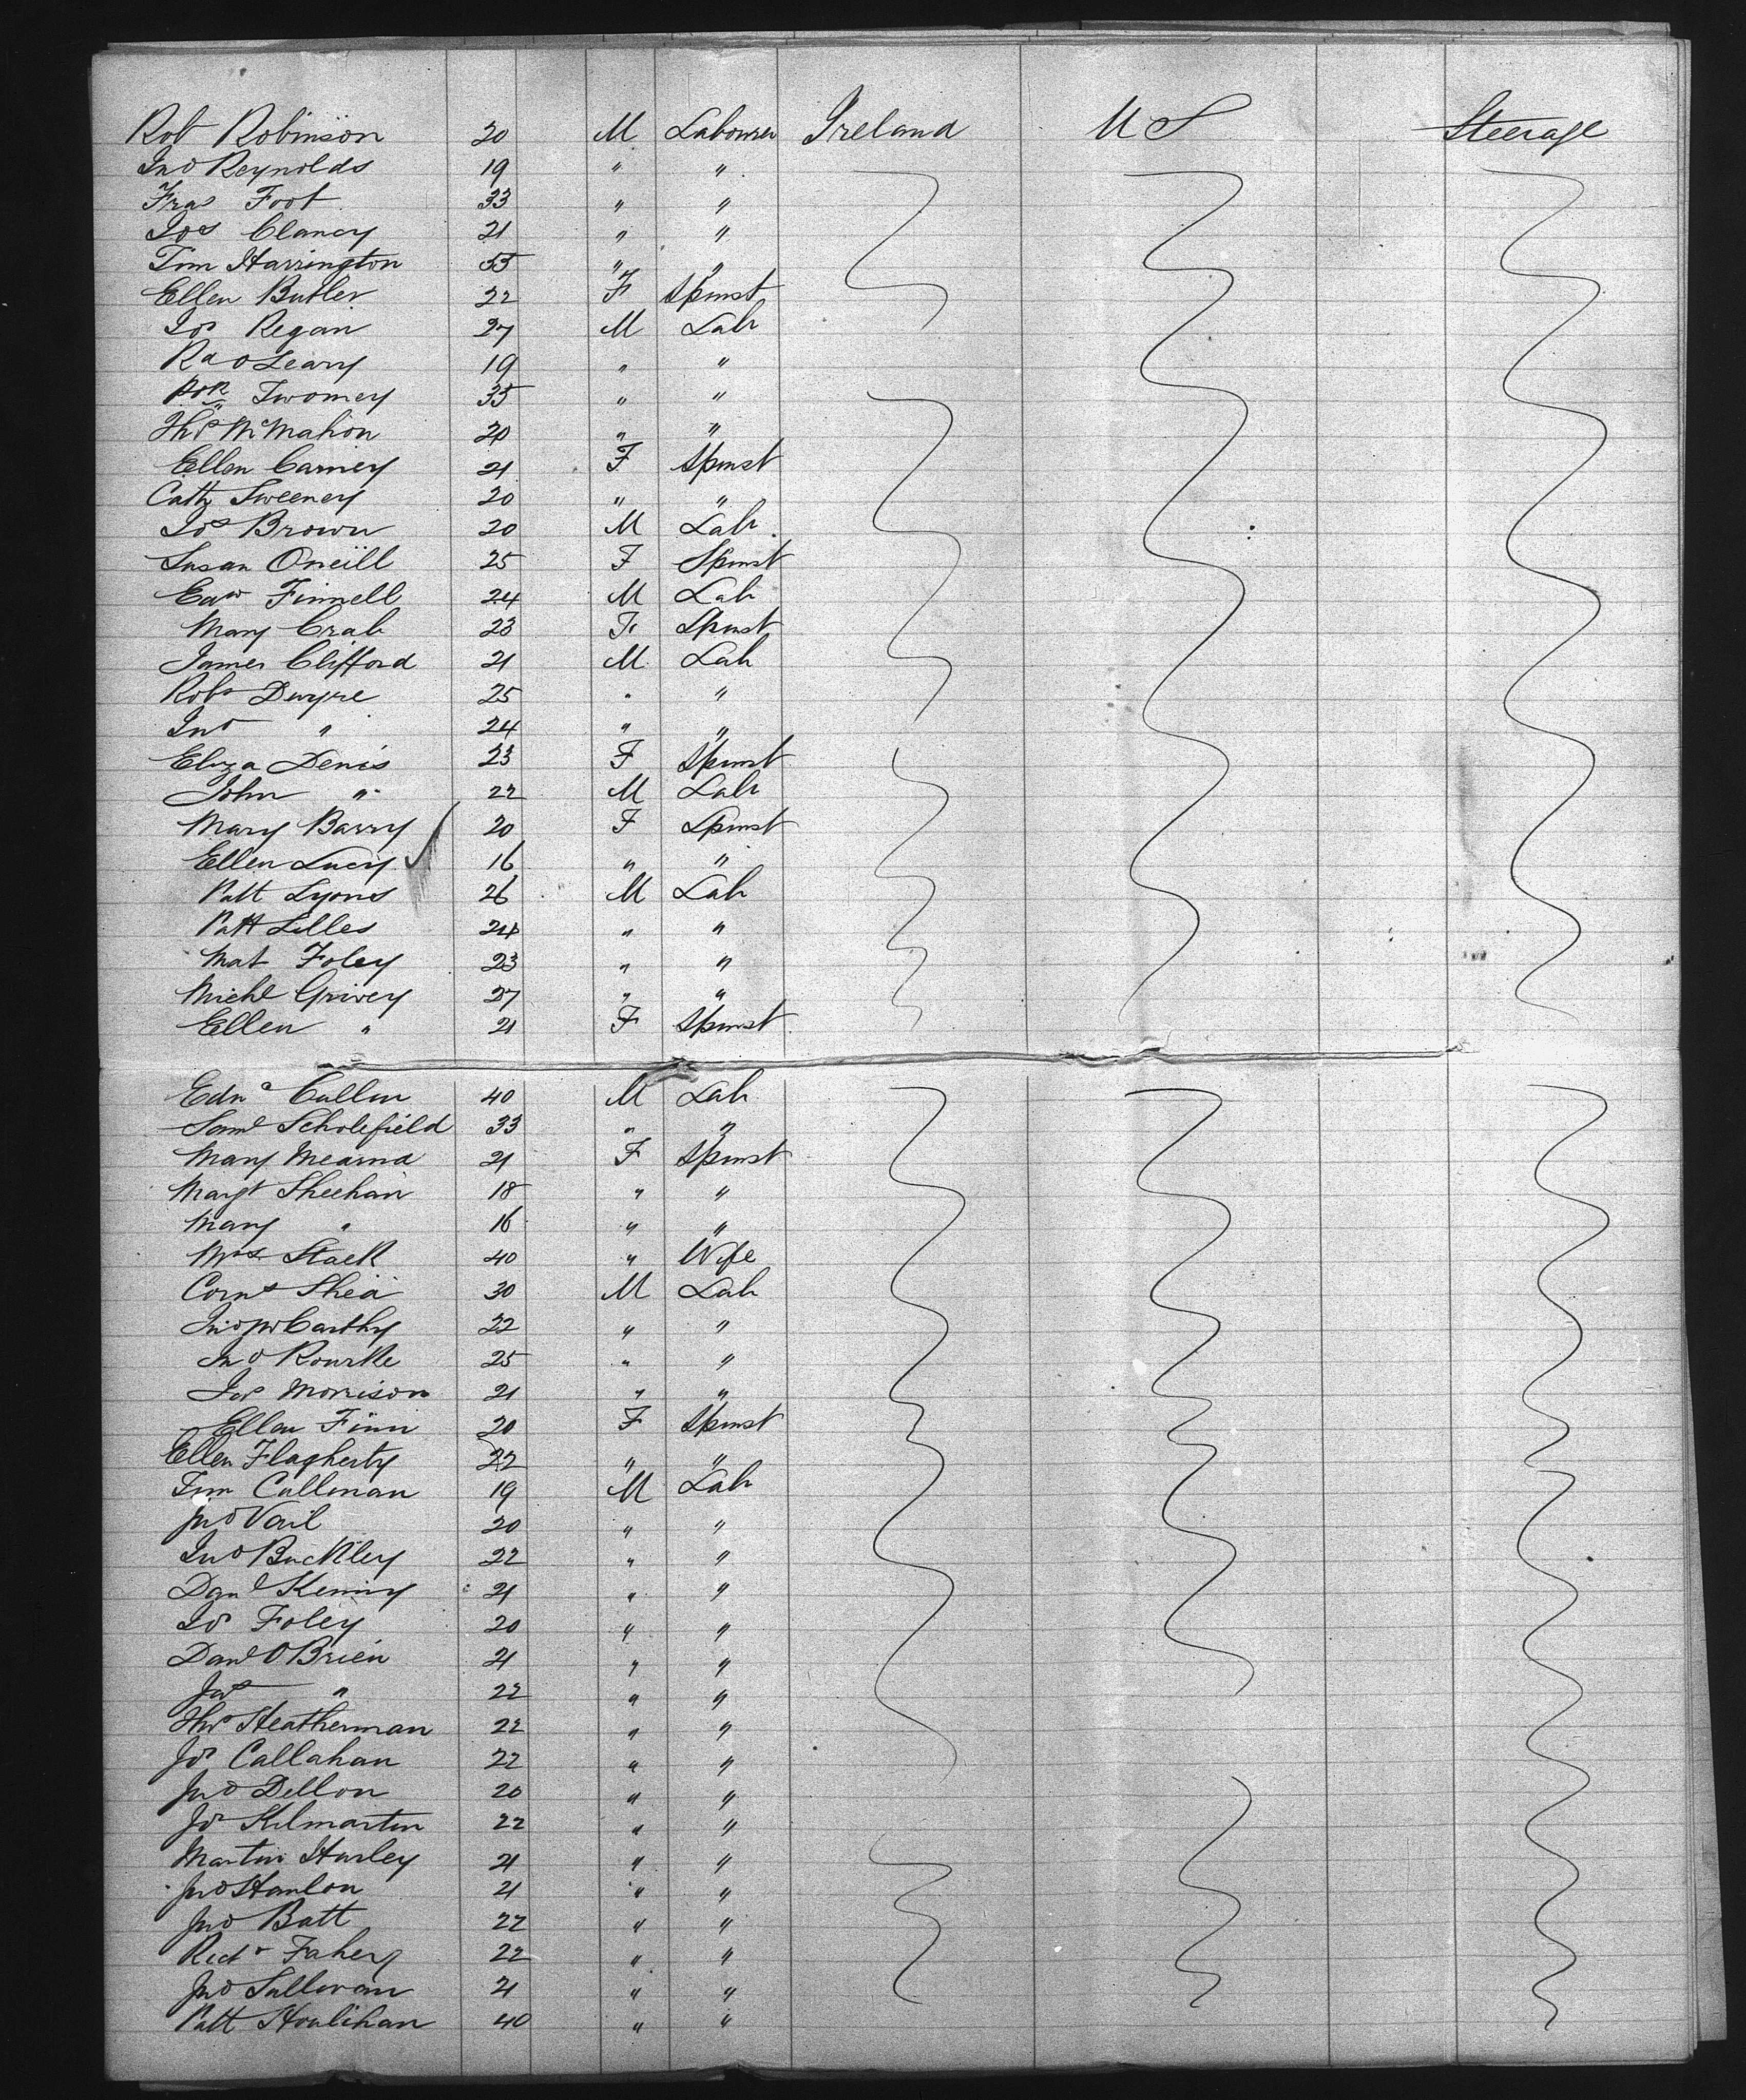 Rob Robinson 20 M Labourer Ireland U S Steerage
Jno Reynolds 19 " "
Fras Foot 33 " "
Jos Clancy 21 " "
Tim Harrington 55 " "
Ellen Butler 22 F Spinst
Jos Regan 27 M Lab
Rd OLeary 19 " "
Twomey 35 " "
Thos McMahon 20 " "
Ellen Carney 21 F Spinst
Cath Sweeney 20 " "
Jos Brown 20 M Lab
Susan Oneill 25 F Spinst
Edw Finnell 24 M Lab
Mary Crab 23 F Spinst
James Clifford 21 M Lab
Robt Dwyre 25 " "
Jno " 24 " "
Eliza Denis 23 F Spinst
John " 22 M Lab
Mary Barry 20 F Spinst
Ellen Lucy 16 " "
Patt Lyons 26 M Lab
Patt Lilles 24 " "
Mat Foley 23 " "
Michl Grivey 27 " "
Ellen " 21 F Spinst
Edn Cullen 40 M Lab
Saml Scholefield 33 " "
Mary Mearna 21 F Spinst
Margt Sheehan 18 " "
Mary " 16 " "
Mrs Stack 40 " Wife
Corns Shea 30 M Lab
Jno McCarthy 22 " "
Jno Rourke 25 " "
Jos Morrison 21 " "
Ellen Finn 20 F Spinst
Ellen Flagherty 22 " "
Tim Cullinan 19 M Lab
Jno Vail 20 " "
Jno Buckley 22 " "
Danl Kenny 21 " "
Jos Foley 20 " "
Danl OBrien 21 " "
Jas " 22 " "
Thos Heatherman 22 " "
Jos Callahan 22 " "
Jno Dellon 20 " "
Jos Kilmartin 22 " "
Martin Hurley 21 " "
Jno Hanlon 21 " "
Jno Batt 22 " "
Richd Fahey 22 " "
Jno Sullivan 21 " "
Patt Houlihan 40 " "